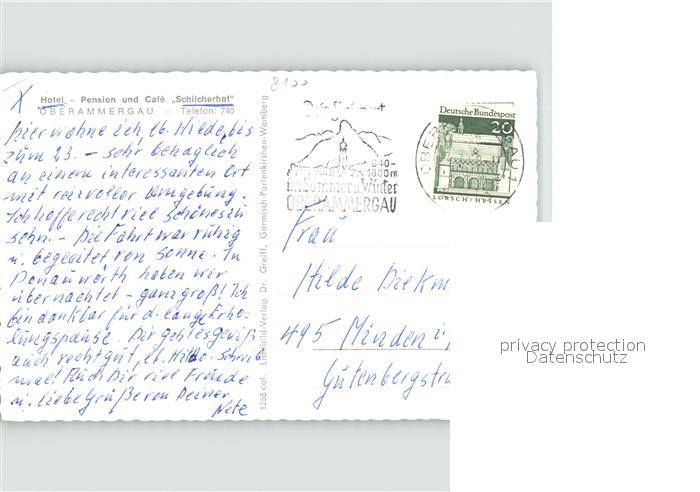 8100
X
Hotel - Pension und Café „Schilcherhof"
OBERAMMERGAU - Telefon: 740
hier wohne ich, lb. Hilde, bis
zum 23. - sehr behaglich
an einem interessanten Ort
mit reizvoller Umgebung.
Ich hoffe recht viel Schönes zu
sehn. - Die Fahrt war ruhig
u. begleitet von Sonne. In
Donauwörth haben wir
übernachtet - ganz groß! Ich
bin dankbar für d. lange Erho-
lungspause. Dir geht es gewiß
auch recht gut, lb. Hilde. Schreib
mal! Auch Dir viel Freude
u. liebe Grüße von Deiner
1258 col. Lichtbild-Verlag Dr. Greiff, Garmisch-Partenkirchen-Wamberg
840-
1800m
im Sommer u. Winter
OBERAMMERGAU
OBERAMMERGAU 1
Deutsche Bundespost
20
LORSCH/HESSEN
Frau
Hilde Diekm
495 Minden i,
Gutenbergstra
privacy protection
Datenschutz